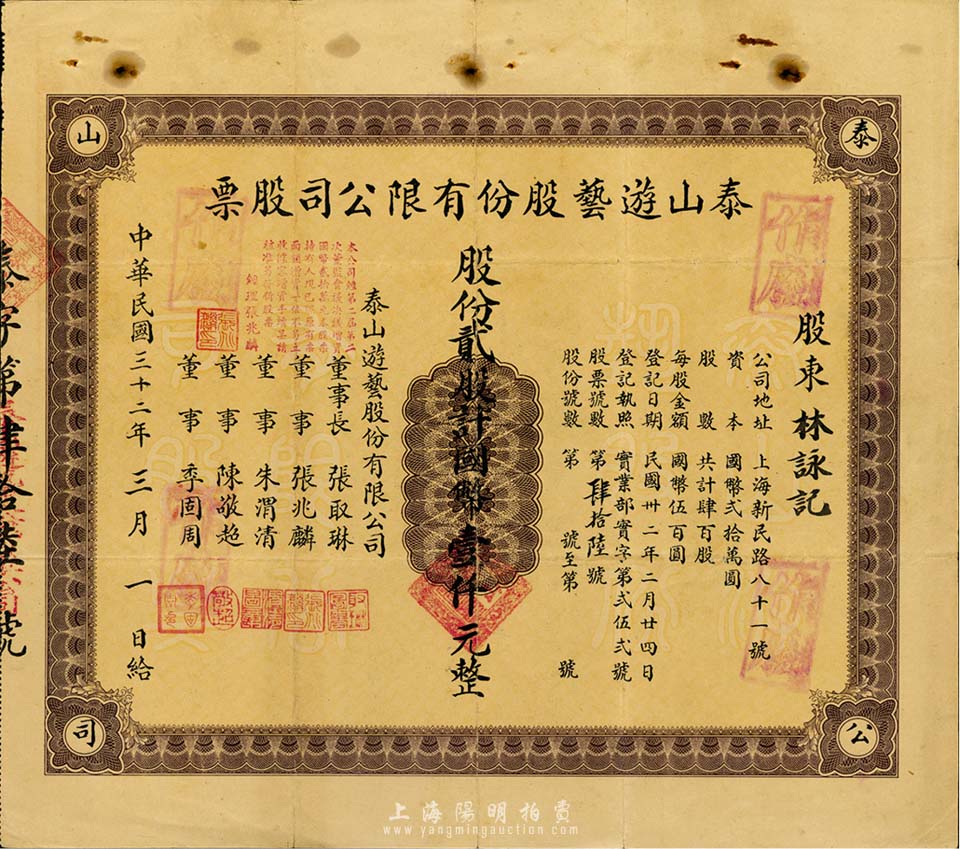 泰山公司
泰山遊藝股份有限公司股票
股東 林詠記
公司地址 上海新民路八十一號
資本 國幣弍拾萬圓
股數 共計肆百股
每股金額 國幣伍百圓
登記日期 民國卅二年二月廿四日
登記執照 實業部實字第弍伍弍號
股票號數 第肆拾陸號
股份號數 第 號至第 號
股份貳股計國幣壹仟元整
泰山遊藝股份有限公司
董事長 張取琳
董事 張兆麟
董事 朱渭清
董事 陳敬超
董事 季固周
經理張兆麟
中華民國三十二年三月一日給
泰字第肆拾陸號
作廢
作廢
作廢
作廢
上海陽明拍賣
www.yangmingauction.com